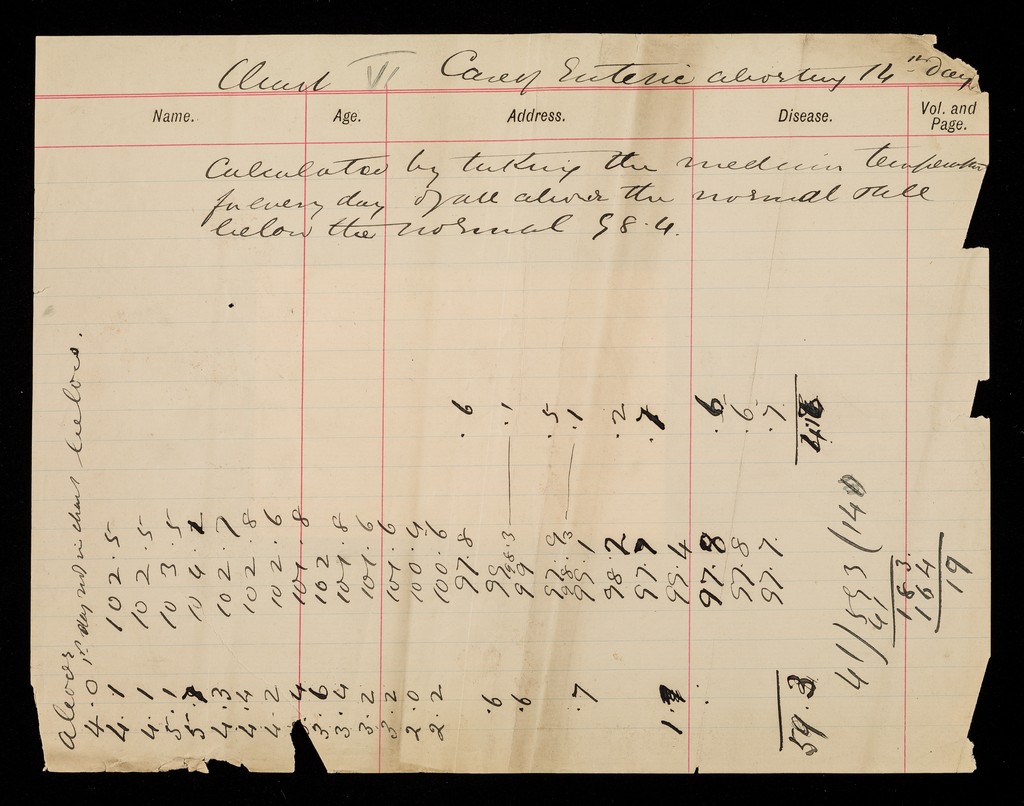 Chart VI Case of Enteric aborting 14th day
Name. Age. Address. Disease. Vol. and Page.
Calculated by taking the medium temperature
for every day of all above the normal &
below the normal 98.4.
Above 1st day not in chart below.
4.0
4.1 102.5
4.1 102.5
5.1 103.5
104.2
4.3 102.7
4.4 102.8
4.2 102.6
101.8
3.6 102
3.4 101.8
3.2 101.6
3.2 101.6
2.0 100.4
2.2 100.6
97.8 .6
.6 99
98.3 .1
.6 99
97.9 .5
98.3 .1
.7 99.1
98.2 .2
97.7 .7
99.4
97.8 .6
97.8 .6
97.7 .7
59.3
41)593(14
41
183
164
19